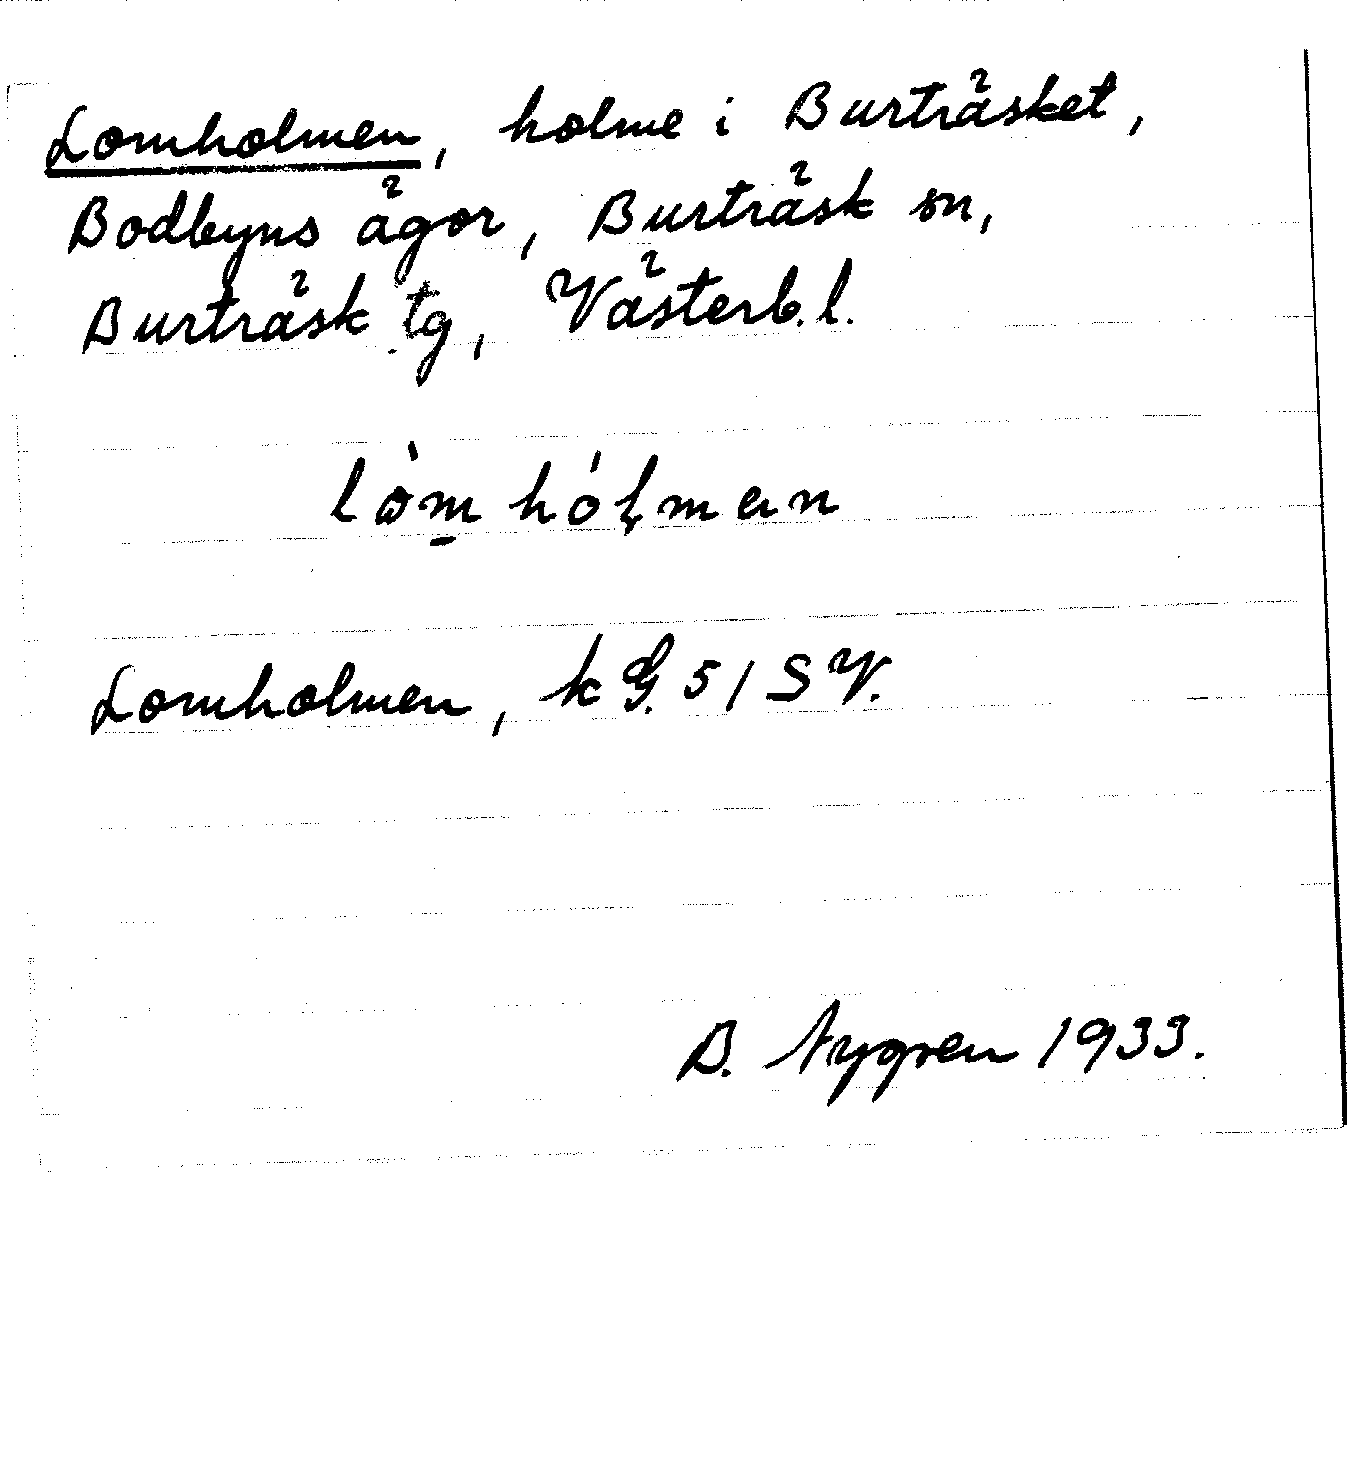 Lomholmen, holme i Burträsket,
Bodbyns ägor, Burträsk sn,
Burträsk tg, Västerb. l.
lòm hólmen
Lomholmen, k G. 51 SV.
B. Nygren 1933.